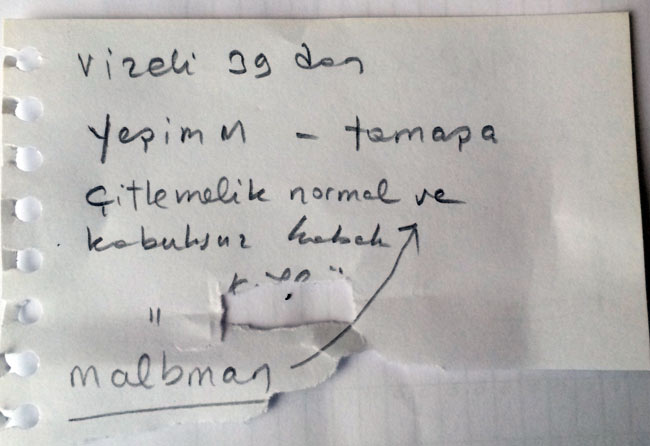 Vizeli 39 dan
Yepimm - tamapa
Çitlemelik normal ve
kabuksuz kabak
"
malbman